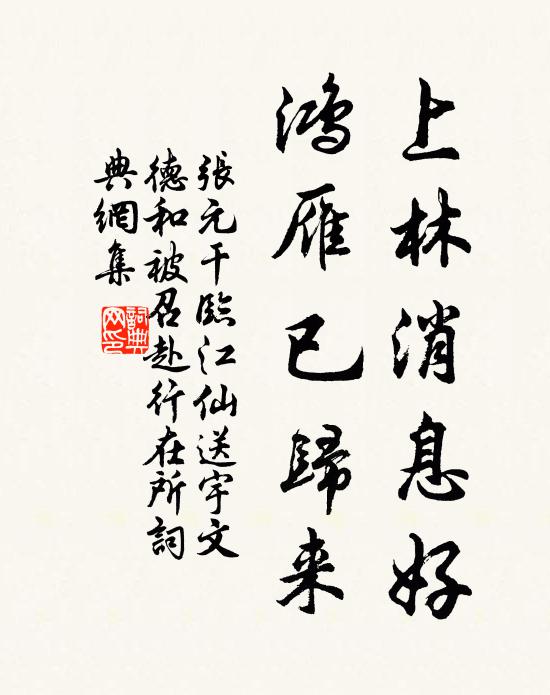 上林消息好
鴻雁已歸来
張元干臨江仙送宇文
德和被召赴行在所詞
典網集
詞典
网印